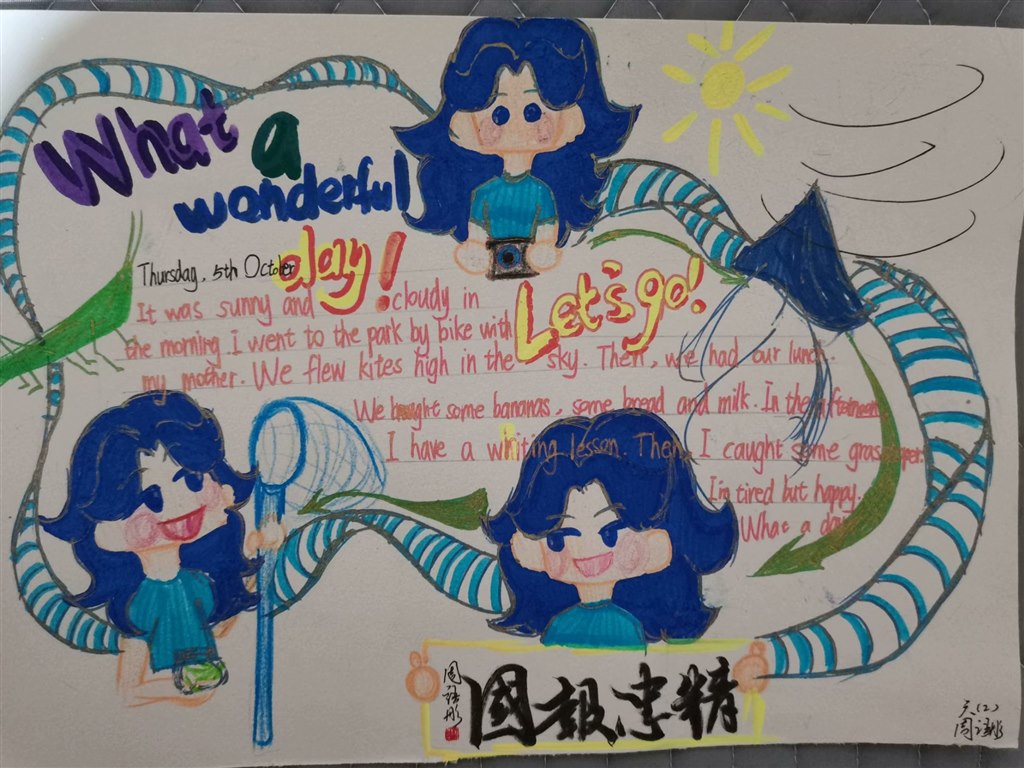 What a
wonderful
day!
Thursday, 5th October
Let's go!
It was sunny and cloudy in
the morning. I went to the park by bike with
my mother. We flew kites high in the sky. Then, we had our lunch.
We bought some bananas, some bread and milk. In the afternoon
I have a whiting lesson. Then, I caught some grasshoper.
I'm tired but happy.
What a day
國報忠精
周语彤
六(2)
周语彤